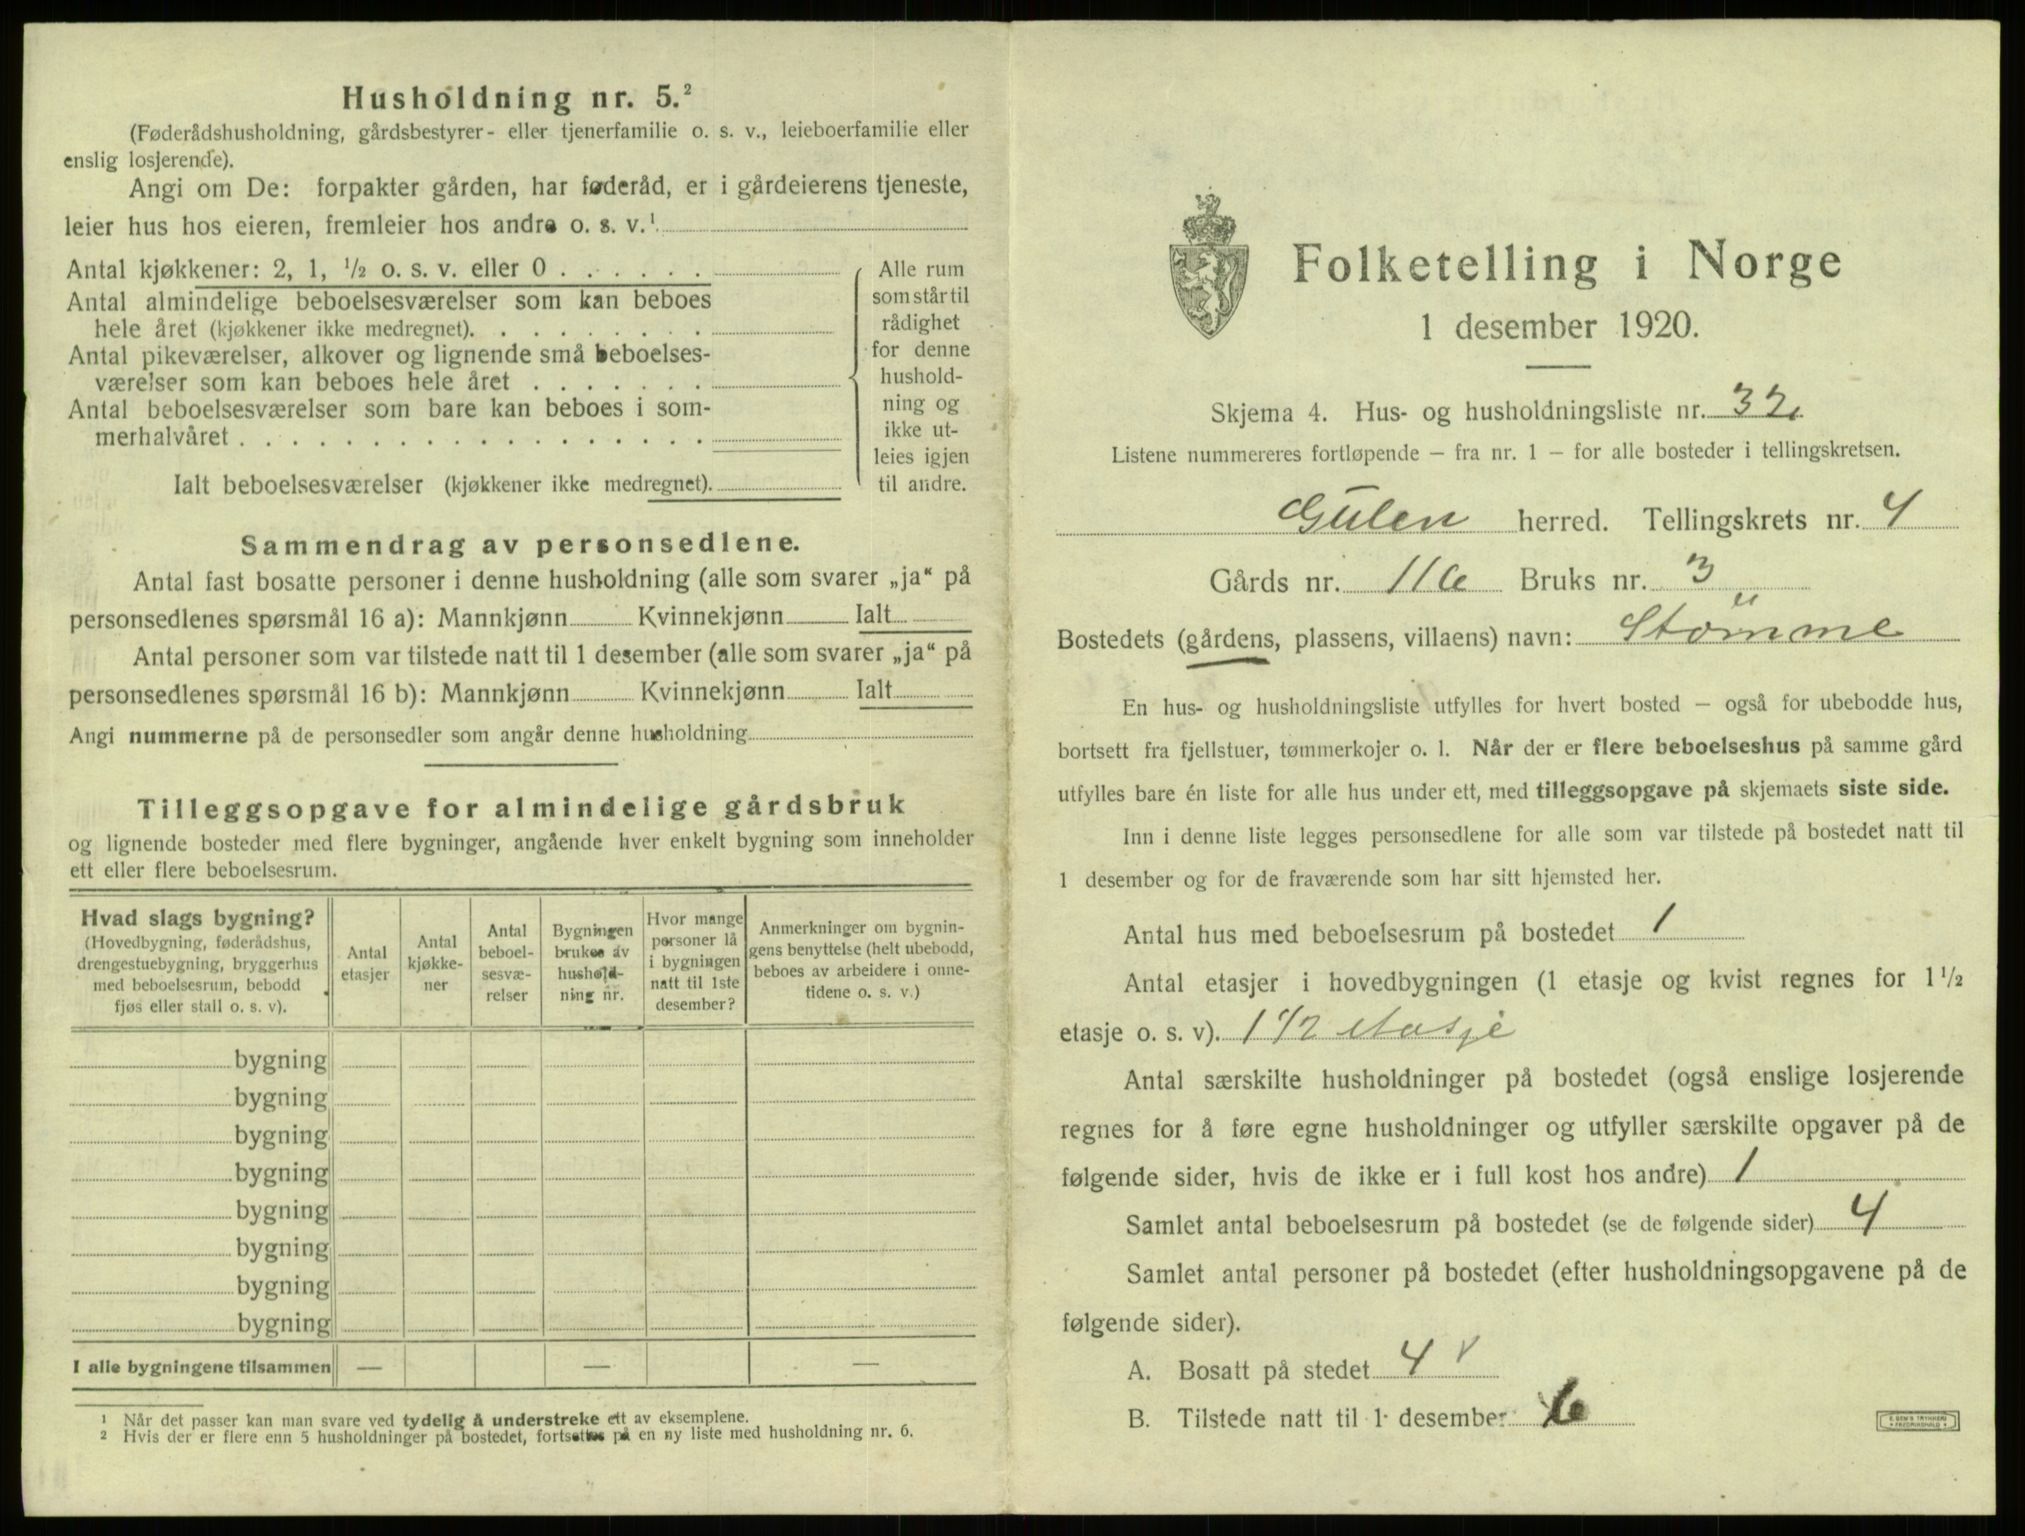 Husholdning nr. 5.²
(Føderådshusholdning, gårdsbestyrer- eller tjenerfamilie o. s. v., leieboerfamilie eller
enslig losjerende).
Angi om De: forpakter gården, har føderåd, er i gårdeierens tjeneste,
leier hus hos eieren, fremleier hos andre o. s. v.¹
Antal kjøkkener: 2, 1, ½ o. s. v. eller 0 . . . . . .
Antal almindelige beboelsesværelser som kan beboes
hele året (kjøkkener ikke medregnet). . . . . . . . .
Antal pikeværelser, alkover og lignende små beboelses-
værelser som kan beboes hele året . . . . . . .
Antal beboelsesværelser som bare kan beboes i som-
merhalvåret . . . . . . . . . . . . . . . . . .
Ialt beboelsesværelser (kjøkkener ikke medregnet).
Alle rum
som står til
rådighet
for denne
hushold-
ning og
ikke ut-
leies igjen
til andre.
Sammendrag av personsedlene.
Antal fast bosatte personer i denne husholdning (alle som svarer „ja“ på
personsedlenes spørsmål 16 a): Mannkjønn Kvinnekjønn Ialt
Antal personer som var tilstede natt til 1 desember (alle som svarer „ja“ på
personsedlenes spørsmål 16 b): Mannkjønn Kvinnekjønn Ialt
Angi nummerne på de personsedler som angår denne husholdning
Tilleggsopgave for almindelige gårdsbruk
og lignende bosteder med flere bygninger, angående hver enkelt bygning som inneholder
ett eller flere beboelsesrum.
Hvad slags bygning?
(Hovedbygning, føderådshus,
drengestuebygning, bryggerhus
med beboelsesrum, bebodd
fjøs eller stall o. s. v).
Antal
etasjer
Antal
kjøkke-
ner
Antal
beboel-
sesvæ-
relser
Bygningen
brukes av
hushold-
ning nr.
Hvor mange
personer lå
i bygningen
natt til 1ste
desember?
Anmerkninger om bygnin-
gens benyttelse (helt ubebodd,
beboes av arbeidere i onne-
tidene o. s. v.)
bygning
bygning
bygning
bygning
bygning
bygning
bygning
bygning
I alle bygningene tilsammen — — —
¹ Når det passer kan man svare ved tydelig å understreke ett av eksemplene.
² Hvis der er flere enn 5 husholdninger på bostedet, fortsettes på en ny liste med husholdning nr. 6.
Folketelling i Norge
1 desember 1920.
Skjema 4. Hus- og husholdningsliste nr. 32.
Listene nummereres fortløpende — fra nr. 1 — for alle bosteder i tellingskretsen.
Gulen herred. Tellingskrets nr. 4
Gårds nr. 116 Bruks nr. 3
Bostedets (gårdens, plassens, villaens) navn: Stömme
En hus- og husholdningsliste utfylles for hvert bosted — også for ubebodde hus,
bortsett fra fjellstuer, tømmerkojer o. l. Når der er flere beboelseshus på samme gård
utfylles bare én liste for alle hus under ett, med tilleggsopgave på skjemaets siste side.
Inn i denne liste legges personsedlene for alle som var tilstede på bostedet natt til
1 desember og for de fraværende som har sitt hjemsted her.
Antal hus med beboelsesrum på bostedet 1
Antal etasjer i hovedbygningen (1 etasje og kvist regnes for 1 ½
etasje o. s. v). 1 1/2 etasje
Antal særskilte husholdninger på bostedet (også enslige losjerende
regnes for å føre egne husholdninger og utfyller særskilte opgaver på de
følgende sider, hvis de ikke er i full kost hos andre) 1
Samlet antal beboelsesrum på bostedet (se de følgende sider) 4
Samlet antal personer på bostedet (efter husholdningsopgavene på de
følgende sider).
A. Bosatt på stedet 4 v
B. Tilstede natt til 1 desember 6